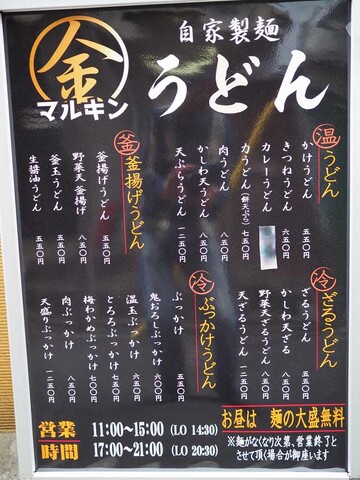 金
マルキン
自家製麺
うどん
温 うどん
かけうどん 五五〇円
きつねうどん 六五〇円
カレーうどん
力うどん(餅天ぷら) 七五〇円
肉うどん 八五〇円
かしわ天うどん 八五〇円
天ぷらうどん 一二五〇円
釜 釜揚げうどん
釜揚げうどん 五五〇円
野菜天釜揚げ 八五〇円
釜玉うどん 五五〇円
生醤油うどん 五五〇円
冷 ざるうどん
ざるうどん 五五〇円
かしわ天ざる 八五〇円
野菜天ざるうどん 八五〇円
天ざるうどん 一二五〇円
冷 ぶっかけうどん
ぶっかけ 五五〇円
鬼おろしぶっかけ 六〇〇円
温玉ぶっかけ 六五〇円
とろろぶっかけ 七〇〇円
梅わかめぶっかけ 七〇〇円
肉ぶっかけ 八五〇円
天盛りぶっかけ 一二五〇円
お昼は 麺の大盛無料
※麺がなくなり次第、営業終了と
させて頂く場合が御座います
営業時間
11:00～15:00 (LO 14:30)
17:00～21:00 (LO 20:30)